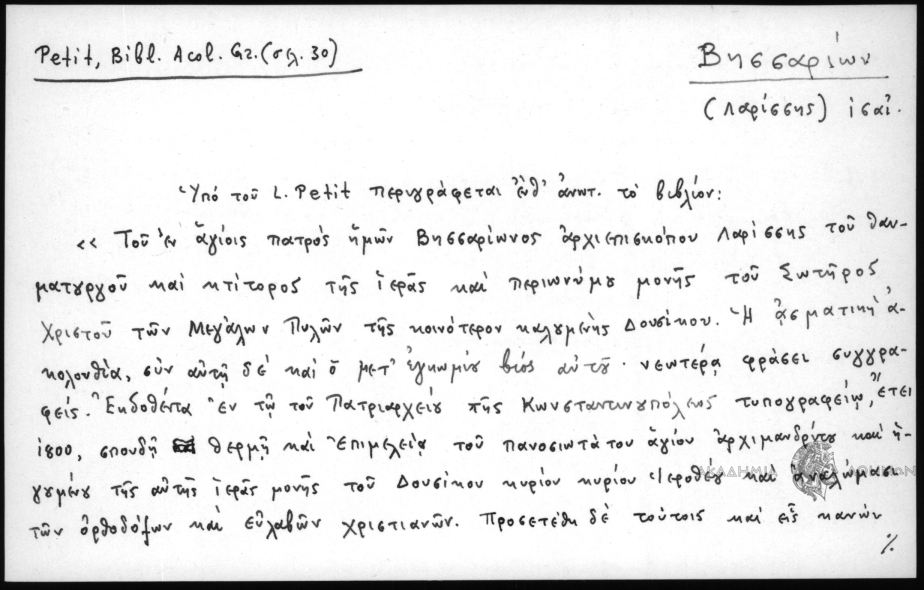 Petit, Bibl. Acol. Gr. (σελ. 30)
Βησσαρίων
(Λαρίσσης) ἰσαί.
Ὑπό τοῦ L. Petit περιγράφεται ἐνθ' ἀνωτ. τό βιβλίον:
« Τοῦ ἐν ἁγίοις πατρός ἡμῶν Βησσαρίωνος ἀρχιεπισκόπου Λαρίσσης τοῦ θαυ-
ματουργοῦ καί κτίτορος τῆς ἱερᾶς καί περιωνύμου μονῆς τοῦ Σωτῆρος
Χριστοῦ τῶν Μεγάλων Πυλῶν τῆς κοινότερον καλουμένης Δουσίκου. Ἡ ᾀσματική ἀ-
κολουθία, σύν αὐτῇ δέ καί ὁ μετ' ἐγκωμίου βίος αὐτοῦ · νεωτέρᾳ φράσει συγγρα-
φείς. Ἐκδοθέντα ἐν τῷ τοῦ Πατριαρχείου τῆς Κωνσταντινουπόλεως τυπογραφείῳ, ἔτει
1800, σπουδῇ θερμῇ καί ἐπιμελείᾳ τοῦ πανοσιωτάτου ἁγίου ἀρχιμανδρίτου καί ἡ-
γουμένου τῆς αὐτῆς ἱερᾶς μονῆς τοῦ Δουσίκου κυρίου κυρίου Ἱεροθέου καί ἀναλώμασι
τῶν ὀρθοδόξων καί εὐλαβῶν χριστιανῶν. Προσετέθη δέ τούτοις καί εἷς κανών
%
ΑΚΑΔΗΜΙΑ ΑΘΗΝΩΝ